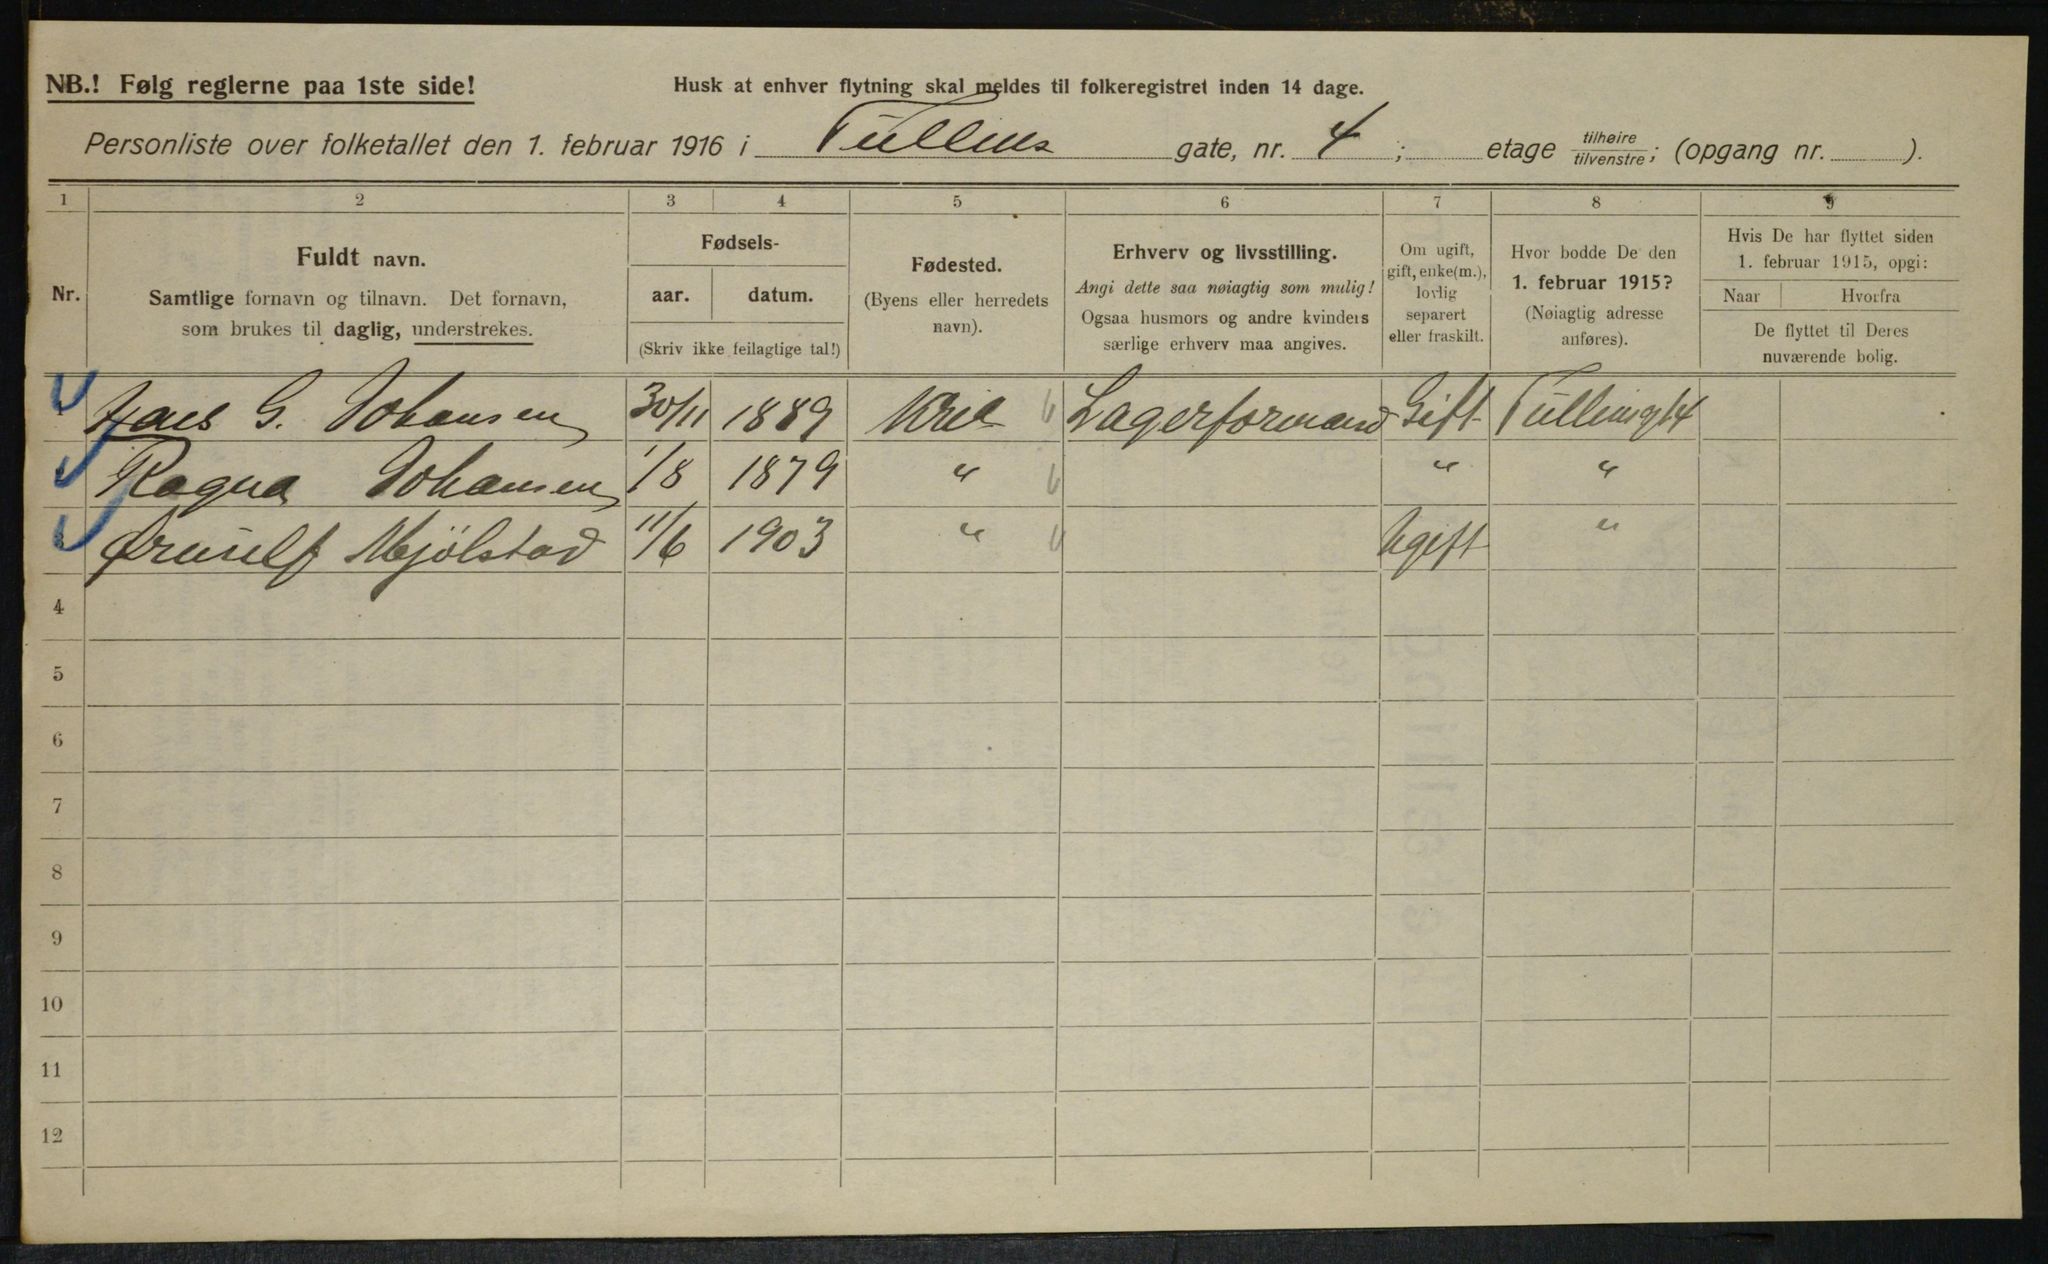 NB.! Følg reglerne paa 1ste side!
Husk at enhver flytning skal meldes til folkeregistret inden 14 dage.
Personliste over folketallet den 1. februar 1916 i Tullins gate, nr. 4; etage tilhøire tilvenstre; (opgang nr. ).
1 2 3 4 5 6 7 8 9
Nr.
Fuldt navn.
Samtlige fornavn og tilnavn. Det fornavn,
som brukes til daglig, understrekes.
Fødsels-
aar. datum.
(Skriv ikke feilagtige tal!)
Fødested.
(Byens eller herredets
navn).
Erhverv og livsstilling.
Angi dette saa nøiagtig som mulig!
Ogsaa husmors og andre kvinders
særlige erhverv maa angives.
Om ugift,
gift, enke(m.),
lovlig
separert
eller fraskilt.
Hvor bodde De den
1. februar 1915?
(Nøiagtig adresse
anføres).
Hvis De har flyttet siden
1. februar 1915, opgi:
Naar Hvorfra
De flyttet til Deres
nuværende bolig.
Hans G. Johansen 30/11 1889 Kria Lagerformand Gift Tullinsgt 4
Ragna Johansen 1/8 1879 " " "
Mjölstad 11/6 1903 " Ugift "
4
5
6
7
8
9
10
11
12